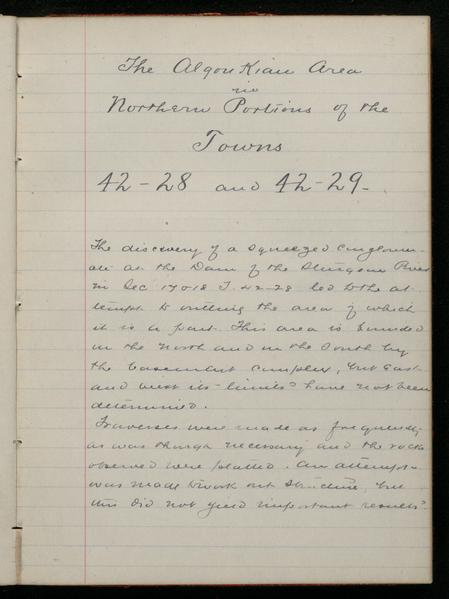 The Algonkian Area
in
Northern Portions of the
Towns
42-28 and 42-29-
The discovery of a squeezed conglomer-
ate at the Dam of the Sturgeon River
in Sec 17&18 T. 42-28 led to the at-
tempt to outline the area of which
it is a part. This area is bounded
on the North and on the South by
the basement complex, but East
and west its limits have not been
determined.
Traverses were made as frequently
as was though necessary and the rocks
observed were platted. An attempt
was made to work out structure, but
this did not yield important results.